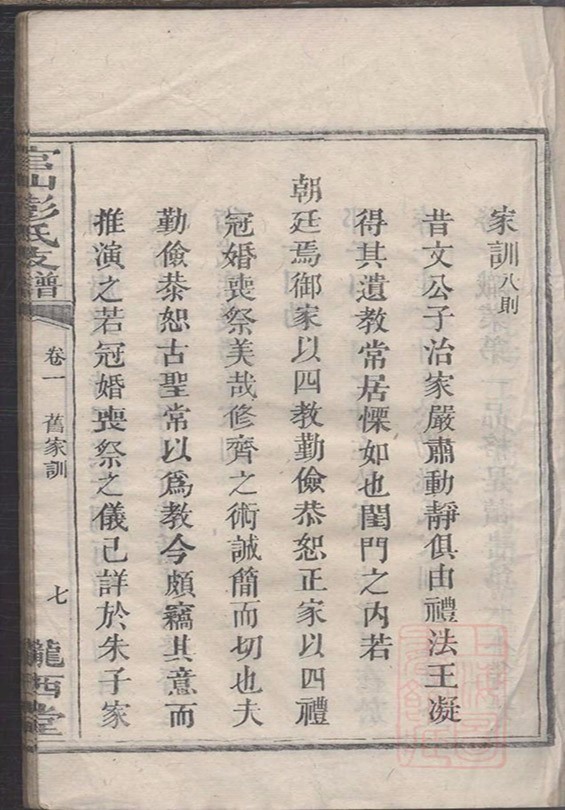 家訓八則
昔文公子治家嚴肅動靜俱由禮法王凝
得其遺教常居慄如也閨門之内若
朝廷焉御家以四教勤儉恭恕正家以四禮
冠婚喪祭美哉修齊之術誠簡而切也夫
勤儉恭恕古聖常以爲教今頗竊其意而
推演之若冠婚喪祭之儀已詳於朱子家
官山彭氏支譜
卷一 舊家訓
七
隴西堂